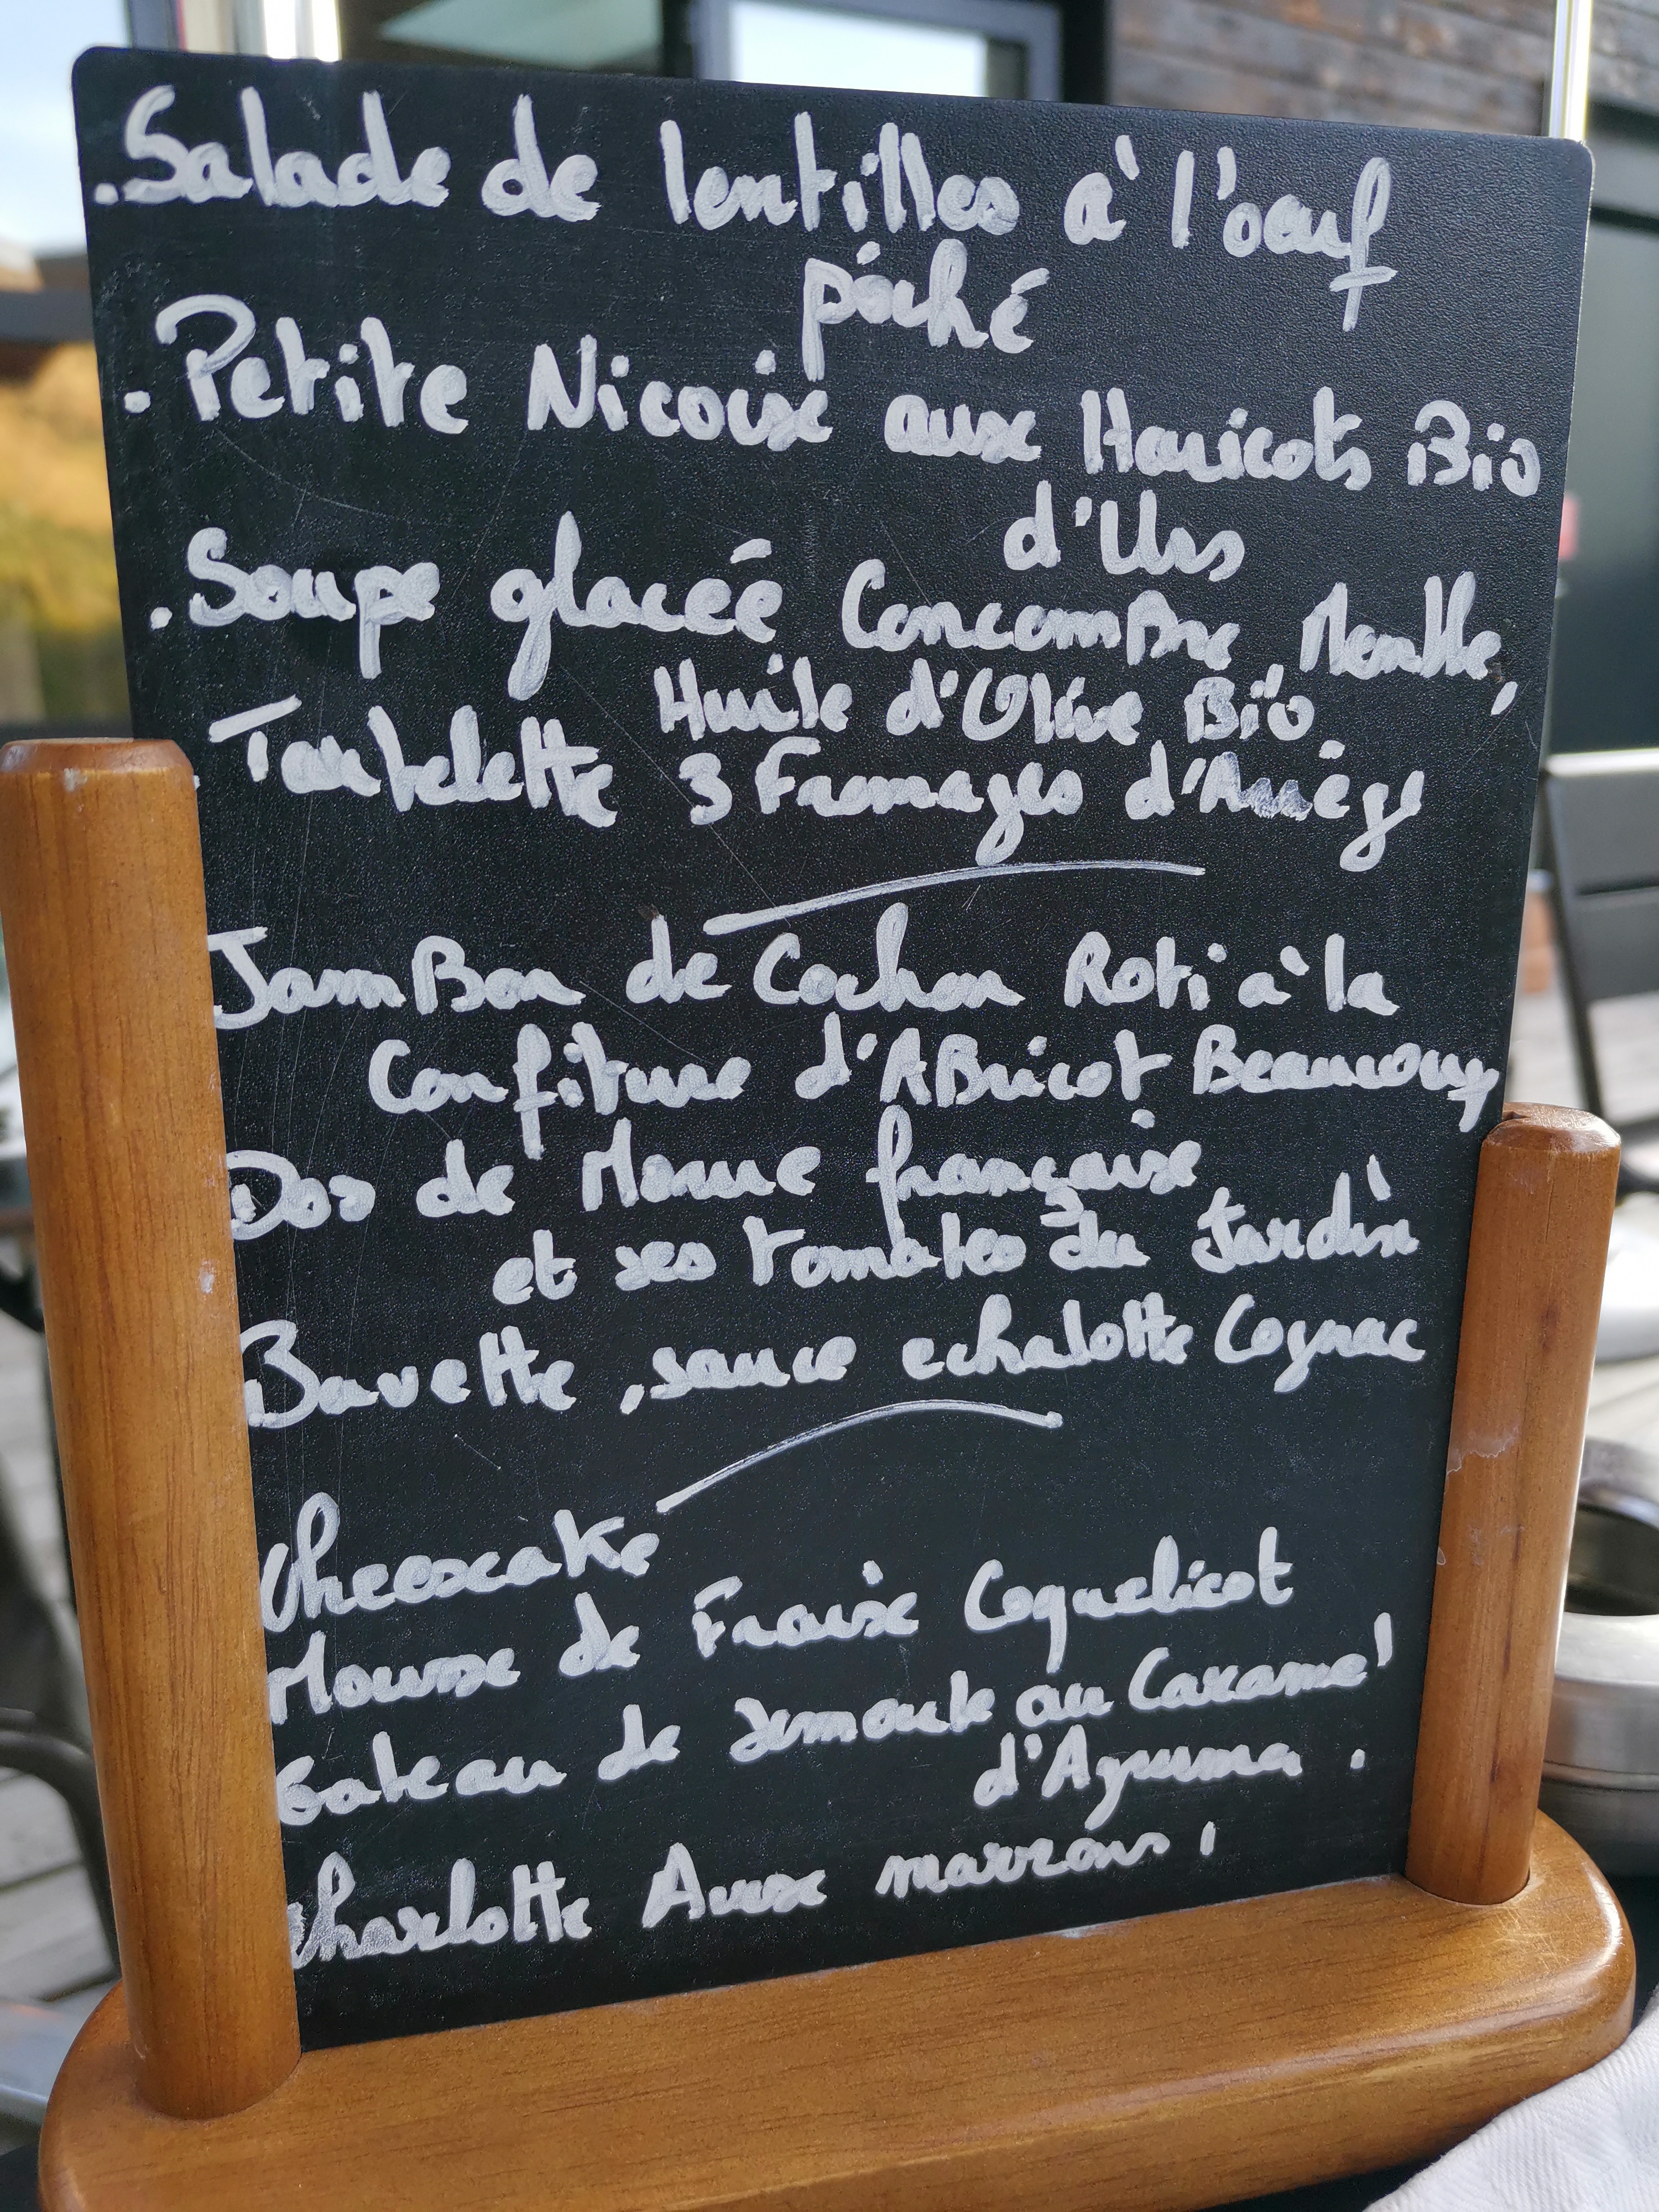 . Salade de lentilles à l'oeuf
poché
. Petite Nicoise aux Haricots Bio
d'Urs
. Soupe glaceé ConcomBre, Menthe,
Huile d'Olive Bio
. Tartelette 3 Fromages d'Ariége
JamBon de Cochon Roti à la
Confiture d'ABricot Beaucoup
Dos de Morue française
et ses tomates du Jardin
Bavette, sauce echalotte Cognac
Cheesecake
Mousse de Fraise Coquelicot
Gateau de semoule au Caramel
d'Agruma .
Charlotte Aux marrons !